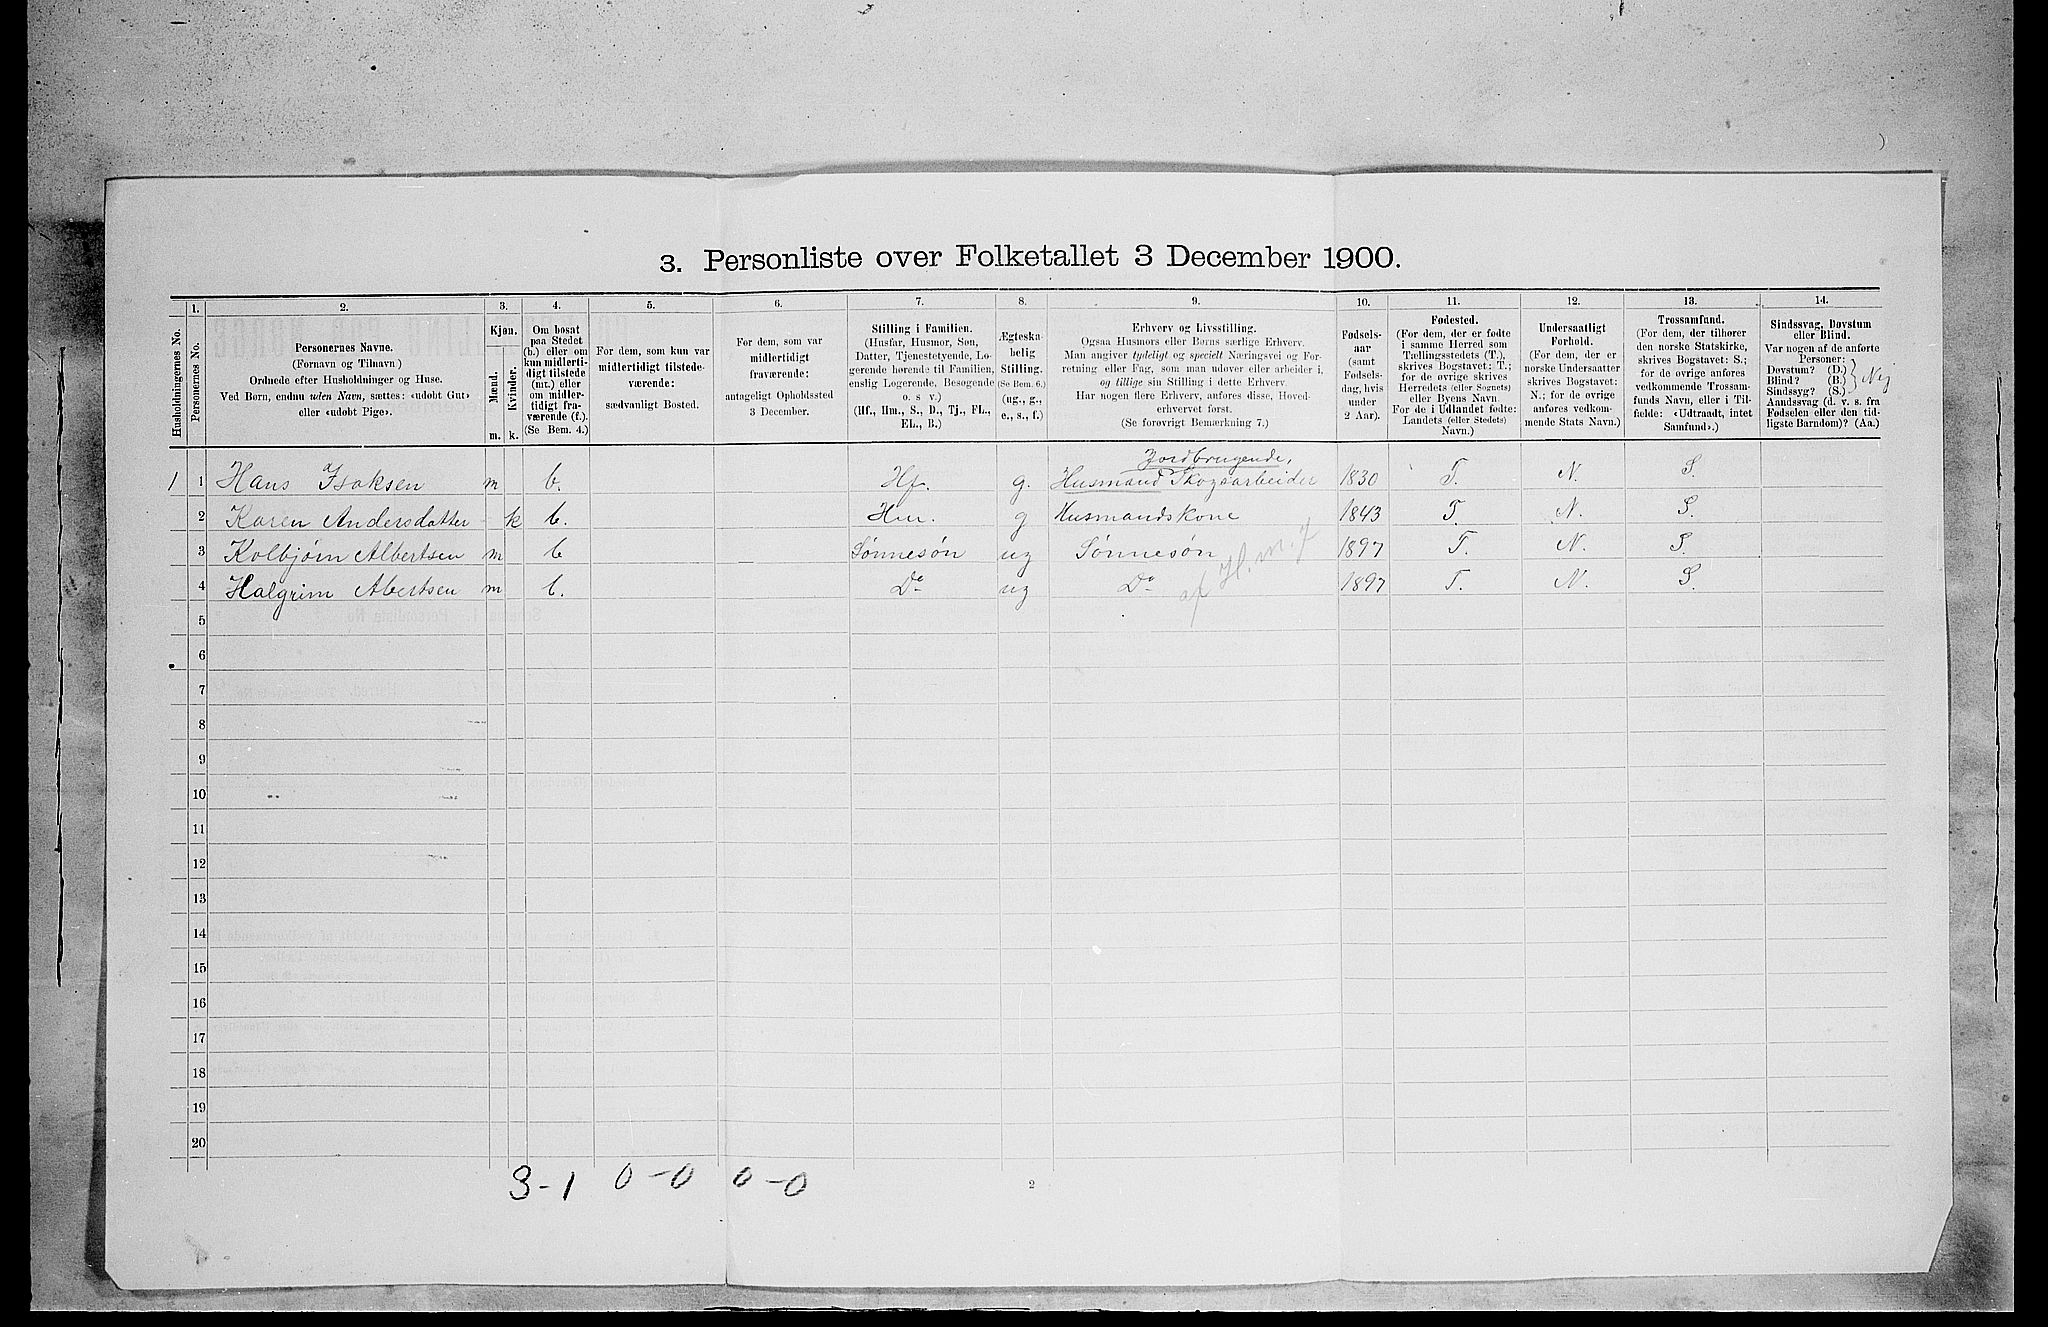 3. Personliste over Folketallet 3 December 1900.
Husholdningernes No.
1.
Personernes No.
2.
Personernes Navne.
(Fornavn og Tilnavn)
Ordnede efter Husholdninger og Huse.
Ved Børn, endnu uden Navn, sættes: «udobt Gut»
eller «udobt Pige».
3.
Kjøn.
Mænd.
Kvinder.
m. k.
4.
Om bosat
paa Stedet
(b.) eller om
kun midlerti-
digt tilstede
(mt.) eller
om midler-
tidigt fra-
værende (f.).
(Se Bem. 4.)
5.
For dem, som kun var
midlertidigt tilstede-
værende:
sædvanligt Bosted.
6.
For dem, som var
midlertidigt
fraværende:
antageligt Opholdssted
3 December.
7.
Stilling i Familien.
(Husfar, Husmor, Søn,
Datter, Tjenestetyende, Lo-
gerende hørende til Familien,
enslig Logerende, Besøgende
o. s v.)
(Hf., Hm., S., D., Tj., FL.,
EL., B.)
8.
Ægteska-
belig
Stilling.
(Se Bem. 6.)
(ug., g.,
e., s., f.)
9.
Erhverv og Livsstilling.
Ogsaa Husmors eller Børns særlige Erhverv.
Man angiver tydeligt og specielt Næringsvei og For-
retning eller Fag, som man udøver eller arbeider i,
og tillige sin Stilling i dette Erhverv.
Har nogen flere Erhverv, anføres disse, Hoved-
erhvervet først.
(Se forøvrigt Bemærkning 7.)
10.
Fødsels-
aar
(samt
Fødsels-
dag, hvis
under
2 Aar).
11.
Fødested.
(For dem, der er fødte
i samme Herred som
Tællingsstedets (T.),
skrives Bogstavet: T.;
for de øvrige skrives
Herredets (eller Sognets)
eller Byens Navn.
For de i Udlandet fødte:
Landets (eller Stedets)
Navn.)
12.
Undersaatligt
Forhold.
(For dem, der er
norske Undersaatter
skrives Bogstavet:
N.; for de øvrige
anføres vedkom-
mende Stats Navn.)
13.
Trossamfund.
(For dem, der tilhører
den norske Statskirke,
skrives Bogstavet: S.;
for de øvrige anføres
vedkommende Trossam-
funds Navn, eller i Til-
fælde: «Udtraadt, intet
Samfund».)
14.
Sindssvag, Døvstum
eller Blind.
Var nogen af de anførte
Personer:
Døvstum? (D.)
Blind? (B.)
Sindssyg? (S.)
Nej
Aandssvag (d. v. s. fra
Fødselen eller den tid-
ligste Barndom)? (Aa.)
Jordbrugende,
1 1 Hans Isaksen m b. Hf. g. Husmand Skogsarbeider 1830 T. N. S.
2 Karen Andersdatter k b. Hm. g Husmandskone 1843 T. N. S.
3 Kolbjørn Albertsen m b Sønnesøn ug Sønnesøn 1897 T. N. S.
4 Halgrim Albertsen m b. Do ug Do af H. m. f 1897 T. N. S.
5
6
7
8
9
10
11
12
13
14
15
16
17
18
19
20
3-1 0-0 0-0
2